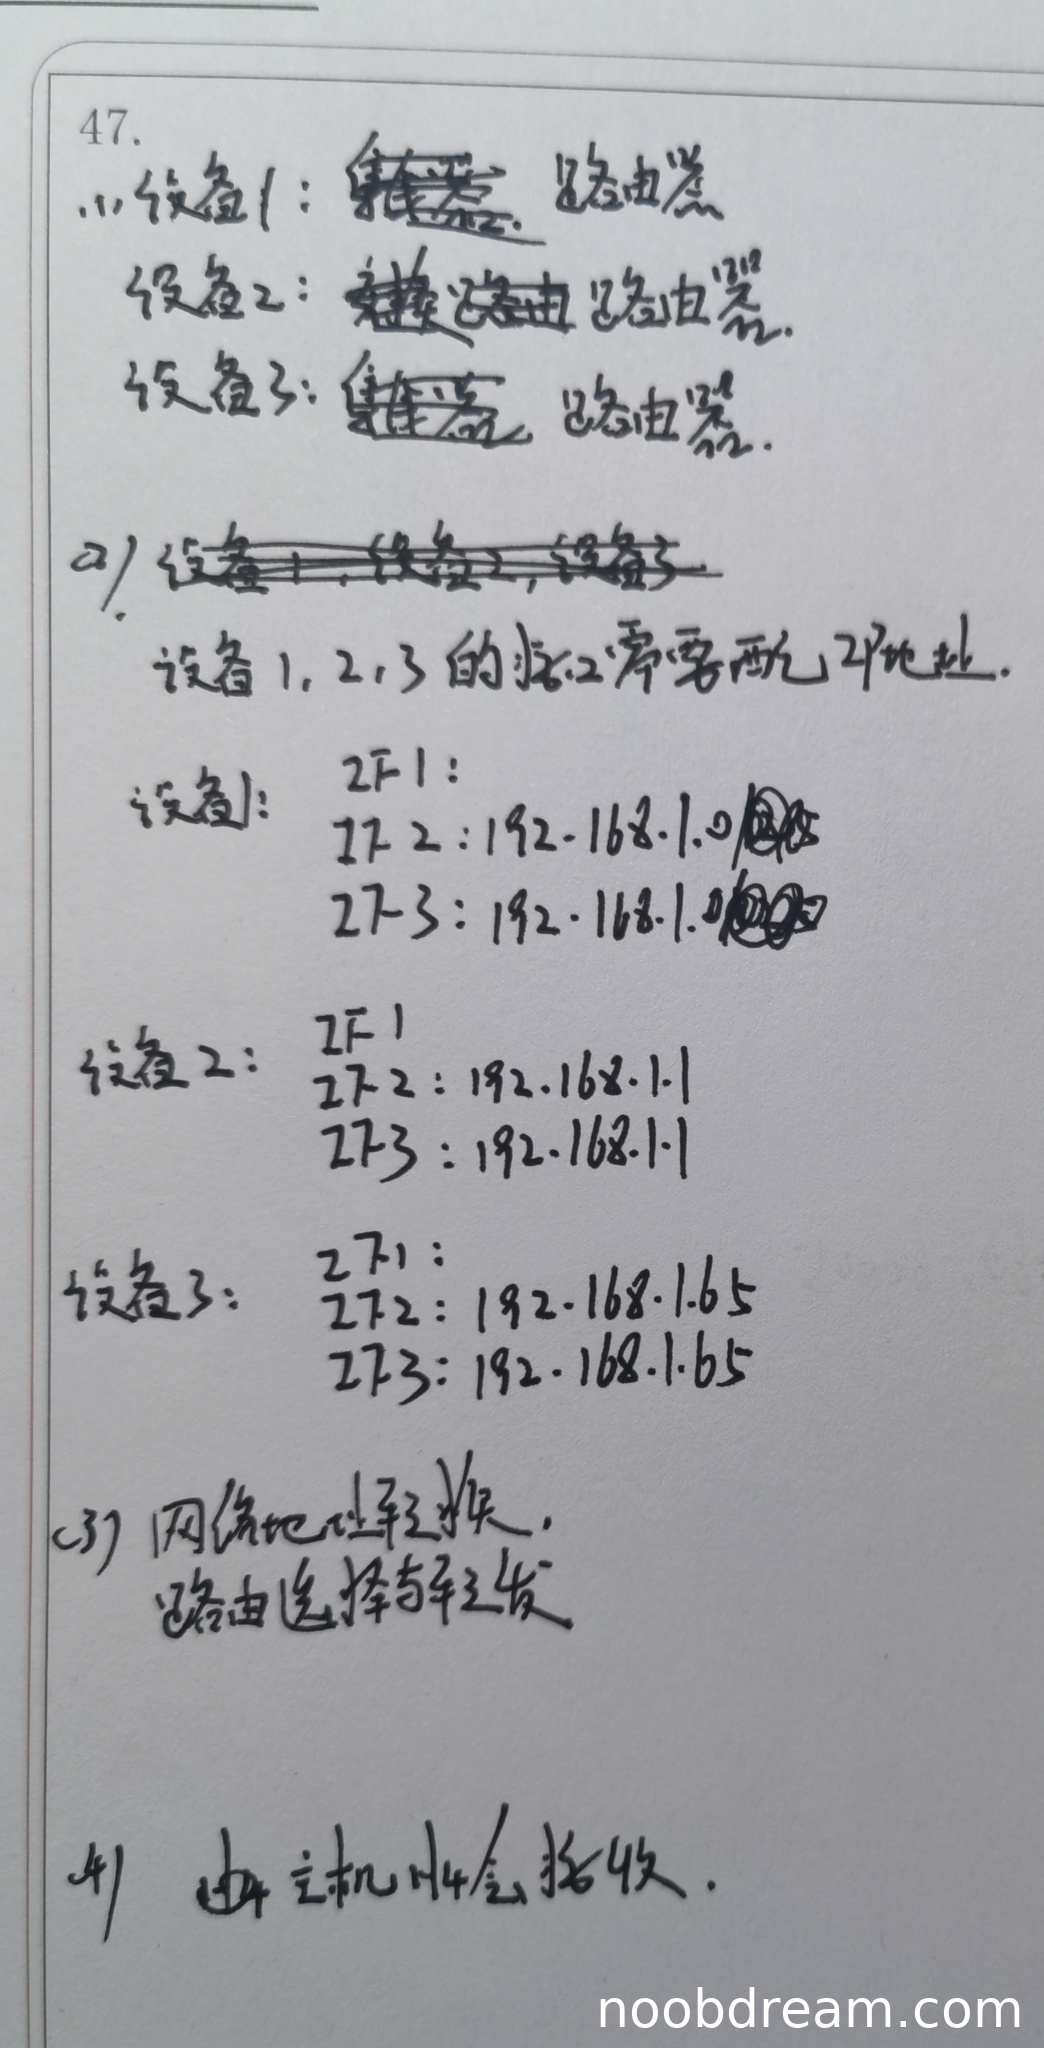 47.
(1) 设备1: 路由器
设备2: 路由器.
设备3: 路由器.
(2)
设备1, 2, 3的接口需要配IP地址.
设备1: IF1:
IF2: 192.168.1.0/
IF3: 192.168.1.
设备2: IF1
IF2: 192.168.1.1
IF3: 192.168.1.1
设备3: IF1:
IF2: 192.168.1.65
IF3: 192.168.1.65
(3) 网络地址转换.
路由选择与转发
(4) 主机H4会接收.
noobdream.com